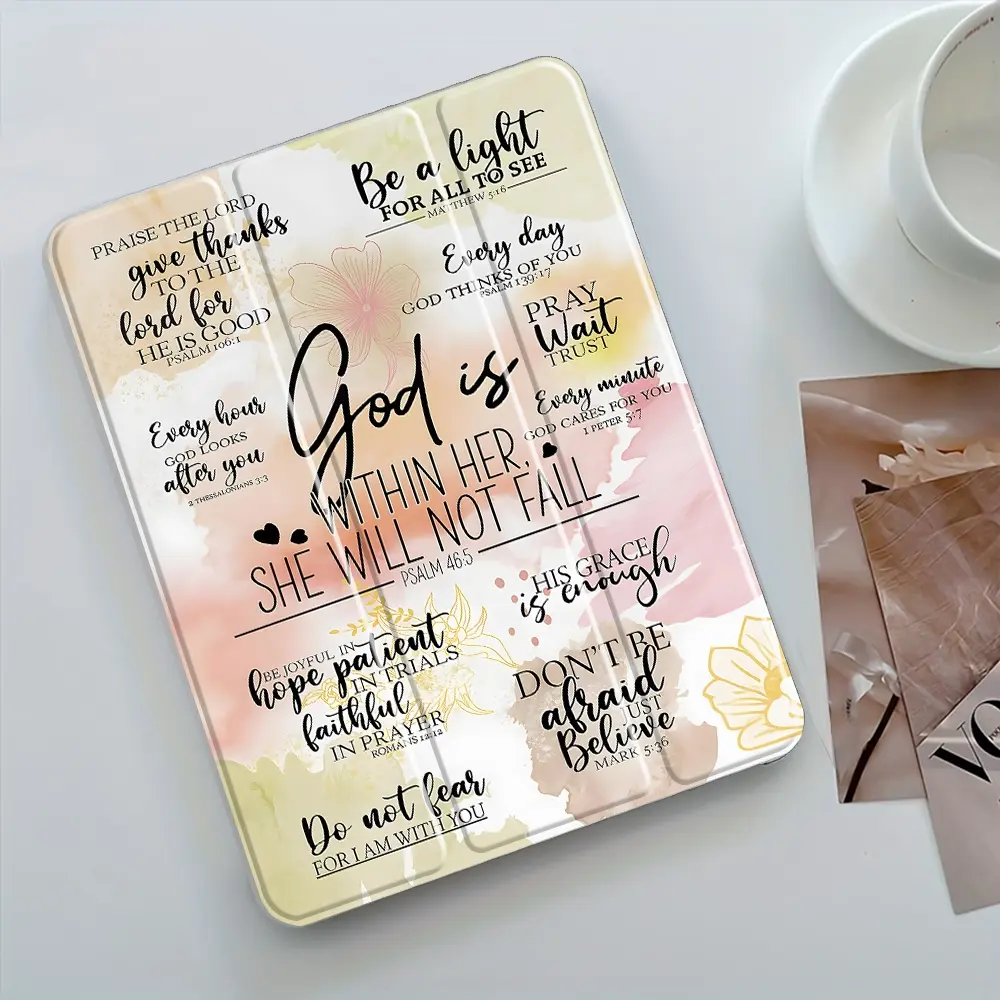 Be a light
FOR ALL TO SEE
MATTHEW 5:16
PRAISE THE LORD
give thanks
TO THE
lord for
HE IS GOOD
PSALM 106:1
Every day
GOD THINKS OF YOU
PSALM 139:17
PRAY
Wait
TRUST
Every minute
GOD CARES FOR YOU
1 PETER 5:7
Every hour
GOD LOOKS
after you
2 THESSALONIANS 3:3
God is
WITHIN HER,
SHE WILL NOT FALL
PSALM 46:5
HIS GRACE
is enough
BE JOYFUL IN
hope patient
IN TRIALS
faithful
IN PRAYER
ROMANS 12:12
DON'T BE
afraid
JUST
Believe
MARK 5:36
Do not fear
FOR I AM WITH YOU
VO